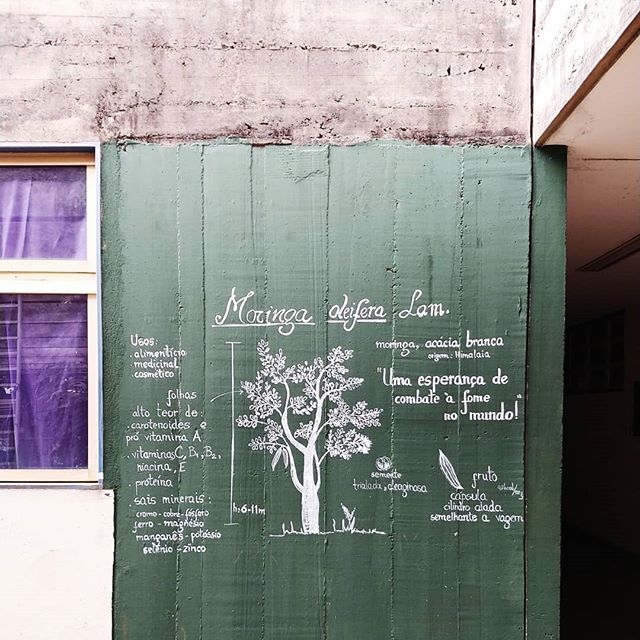 Moringa oleifera Lam.
Usos:
. alimentício
medicinal
cosmético
folhas
alto teor de:
. carotenoides e
pró vitamina A
. vitaminas C, B1, B2,
niacina, E
. proteína
. sais minerais:
cromo-cobre-fósforo
ferro - magnésio
manganês - potássio
selênio - zinco
h: 6-11m
moringa, acácia branca
origem: Himalaia
"Uma esperança de
combate à fome
no mundo!"
semente
trialada, oleaginosa
fruto
cápsula
cilindro alada
semelhante a vagem